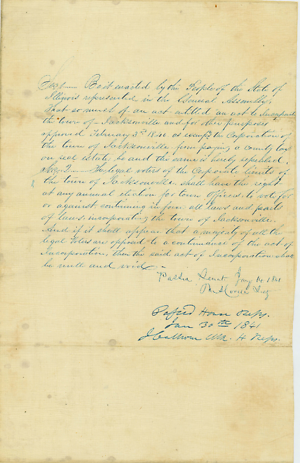 Sec 1 — Be it enacted by the People of the State of
Illinois represented in the General Assembly,
that so much of an act entitled an act to incorporate
the town of Jacksonville and for other purposes
approved February 3d 1840 as exempts the Corporation of
the town of Jacksonville from paying a county tax
on real estate, be and the same is hereby repealed.
Sec 2 — The legal voters of the Corporate limits of
the town of Jacksonville shall have the right
at any annual election for town officers to vote for
or against continuing in force all laws and parts
of laws incorporating the town of Jacksonville.
And if it shall appear that a majority of all the
legal votes are opposed to a continuance of the act of
Incorporation, then the said act of Incorporation shall
be null and void.
Passed Senate Jany 1841
Passed House Reps.
Jan 30th 1841
J Calhoun Clk. H. Reps.